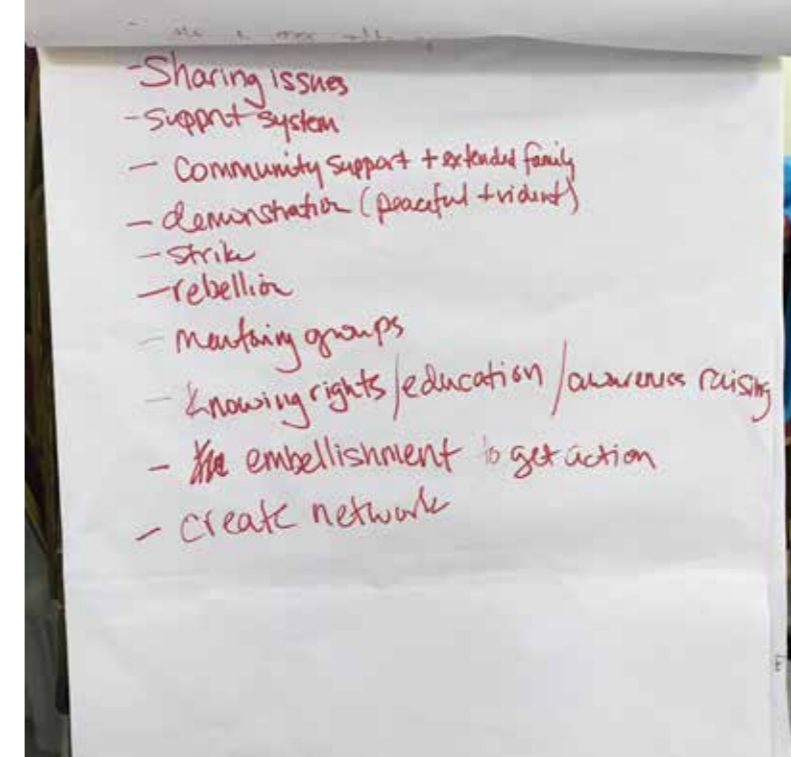 - Sharing issues
- support system
- Community support + extended family
- demonstration (peaceful + violent)
- strike
- rebellion
- mentoring groups
- knowing rights / education / awareness raising
- embellishment to get action
- create network